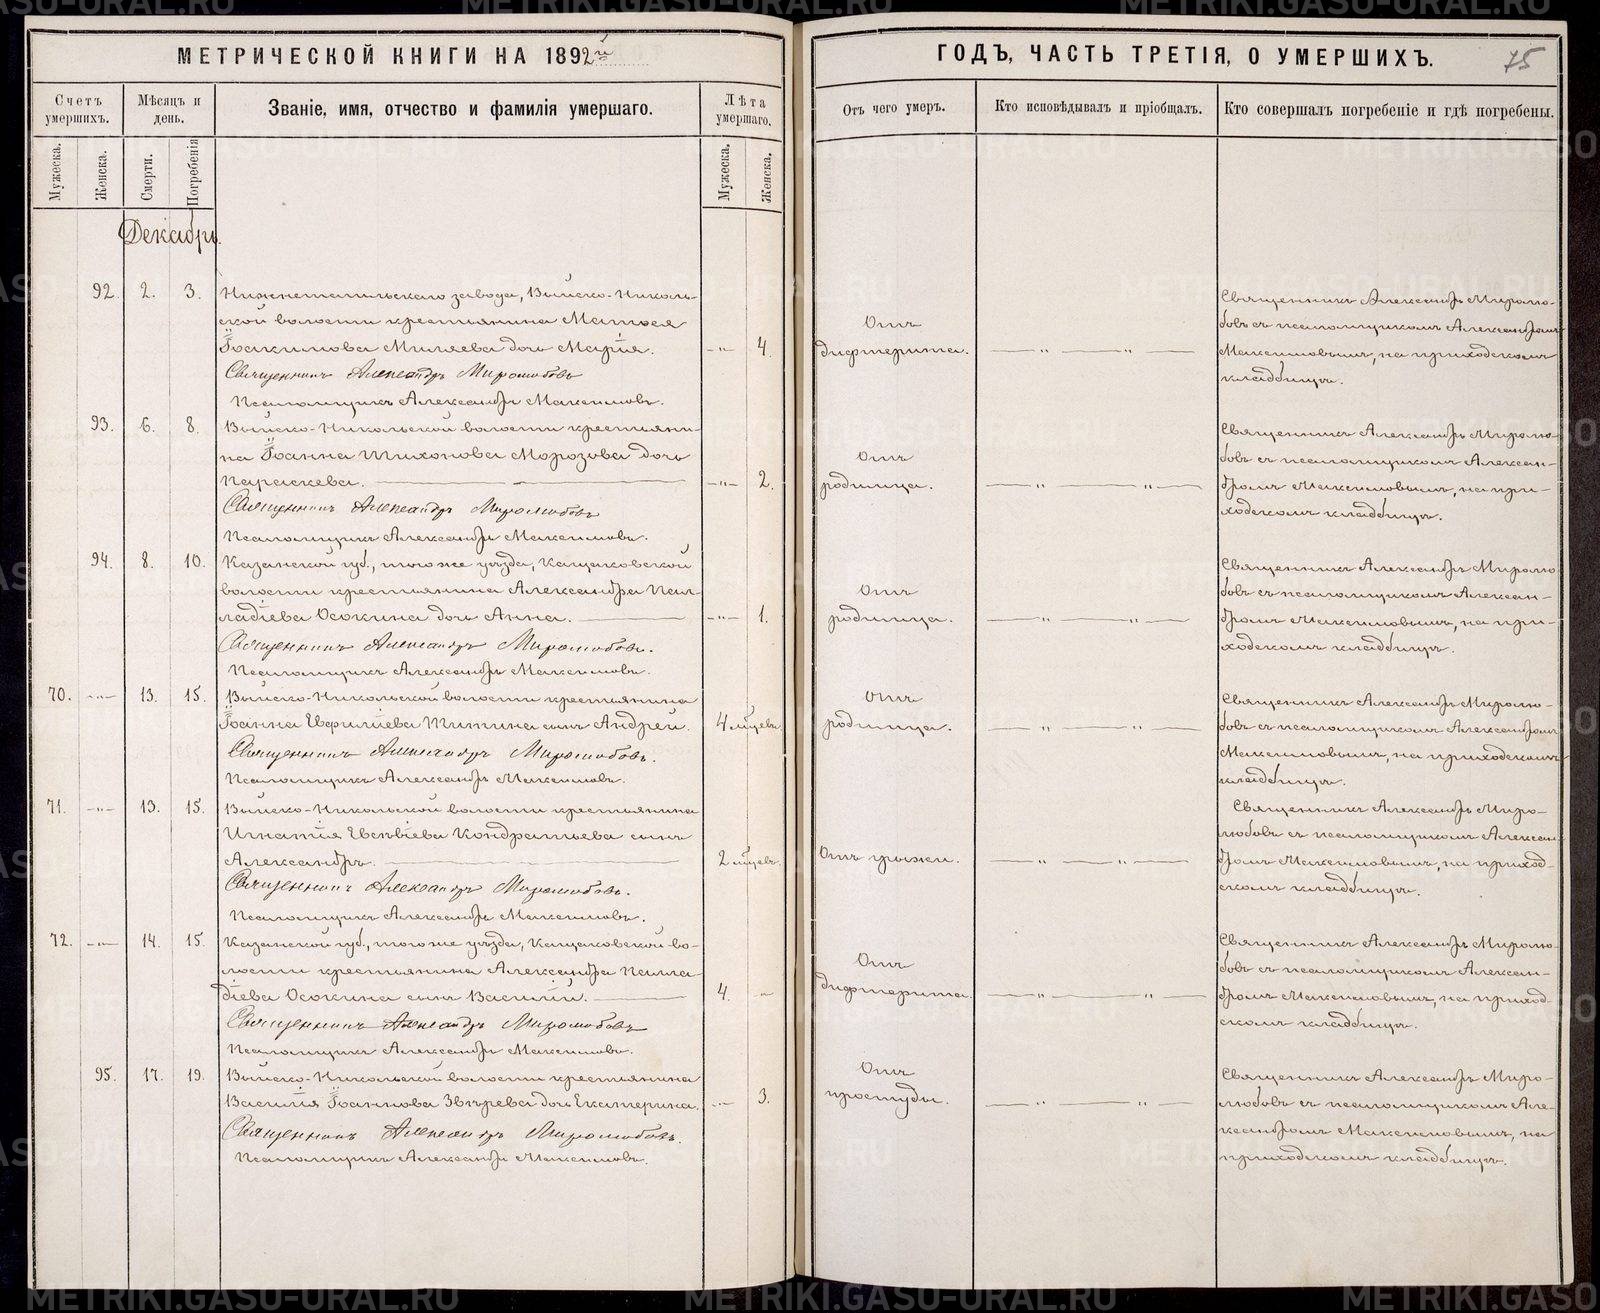 МЕТРИЧЕСКОЙ КНИГИ НА 1892й
ГОДЪ, ЧАСТЬ ТРЕТІЯ, О УМЕРШИХЪ.
75
Счетъ умершихъ.
Мѣсяцъ и день.
Званіе, имя, отчество и фамилія умершаго.
Лѣта умершаго.
Отъ чего умеръ.
Кто исповѣдывалъ и пріобщалъ.
Кто совершалъ погребеніе и гдѣ погребены.
Мужеска.
Женска.
Смерти.
Погребенія
Мужеска.
Женска.
Декабрь.
92. 2. 3. Нижнетагильскаго завода, Выйско-Николь-
ской волости крестьянина Матѳея
Іоакимова Миляева дочь Марія. -"- 4.
Священникъ Александръ Миролюбовъ
Псаломщикъ Александръ Максимовъ.
Отъ
дифтерита.
Священникъ Александръ Миролю-
бовъ съ псаломщикомъ Александромъ
Максимовымъ, на приходскомъ
кладбищѣ.
93. 6. 8. Выйско-Никольской волости крестьяни-
на Іоанна Тихонова Морозова дочь
Параскева. -"- 2.
Священникъ Александръ Миролюбовъ
Псаломщикъ Александръ Максимовъ.
Отъ
родимца.
Священникъ Александръ Миролю-
бовъ съ псаломщикомъ Алексан-
дромъ Максимовымъ, на при-
ходскомъ кладбищѣ.
94. 8. 10. Казанской губ., того же уѣзда, Кощаковской
волости крестьянина Александра Пал-
ладіева Осокина дочь Анна. -"- 1.
Священникъ Александръ Миролюбовъ.
Псаломщикъ Александръ Максимовъ.
Отъ
родимца.
Священникъ Александръ Миролю
бовъ съ псаломщикомъ Алексан-
дромъ Максимовымъ, на при-
ходскомъ кладбищѣ.
70. -"- 13. 15. Выйско-Никольской волости крестьянина
Іоанна Евфиміева Шитина сынъ Андрей. 4 мѣсцевъ
Священникъ Александръ Миролюбовъ.
Псаломщикъ Александръ Максимовъ.
Отъ
родимца.
Священникъ Александръ Миролю-
бовъ съ псаломщикомъ Александромъ
Максимовымъ, на приходскомъ
кладбищѣ.
71. -"- 13. 15. Выйско-Никольской волости крестьянина
Игнатія Евсѣвіева Кондратьева сынъ
Александръ. 2 мѣсцевъ.
Священникъ Александръ Миролюбовъ.
Псаломщикъ Александръ Максимовъ.
Отъ грыжи.
Священникъ Александръ Миро-
любовъ съ псаломщикомъ Алексан-
дромъ Максимовымъ, на приход-
скомъ кладбищѣ.
72. -"- 14. 15. Казанской губ., того же уѣзда, Кощаковской во-
лости крестьянина Александра Палла-
діева Осокина сынъ Василій. 4. -"-
Священникъ Александръ Миролюбовъ
Псаломщикъ Александръ Максимовъ.
Отъ
дифтерита.
Священникъ Александръ Миролю-
бовъ съ псаломщикомъ Алексан-
дромъ Максимовымъ, на приход-
скомъ кладбищѣ.
95. 17. 19. Выйско-Никольской волости крестьянина
Василія Іоаннова Звѣрева дочь Екатерина. -"- 3.
Священникъ Александръ Миролюбовъ.
Псаломщикъ Александръ Максимовъ.
Отъ
простуды.
Священникъ Александръ Миро-
любовъ съ псаломщикомъ Але-
ксандромъ Максимовымъ, на
приходскомъ кладбищѣ.
METRIKI.GASO-URAL.RU